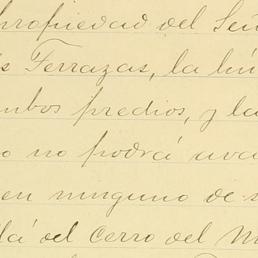 propiedad del Señ
s Terrazas, la lín
mbos predios, y la
o no podrá ava
en ninguno de s
lá del Cerro del M